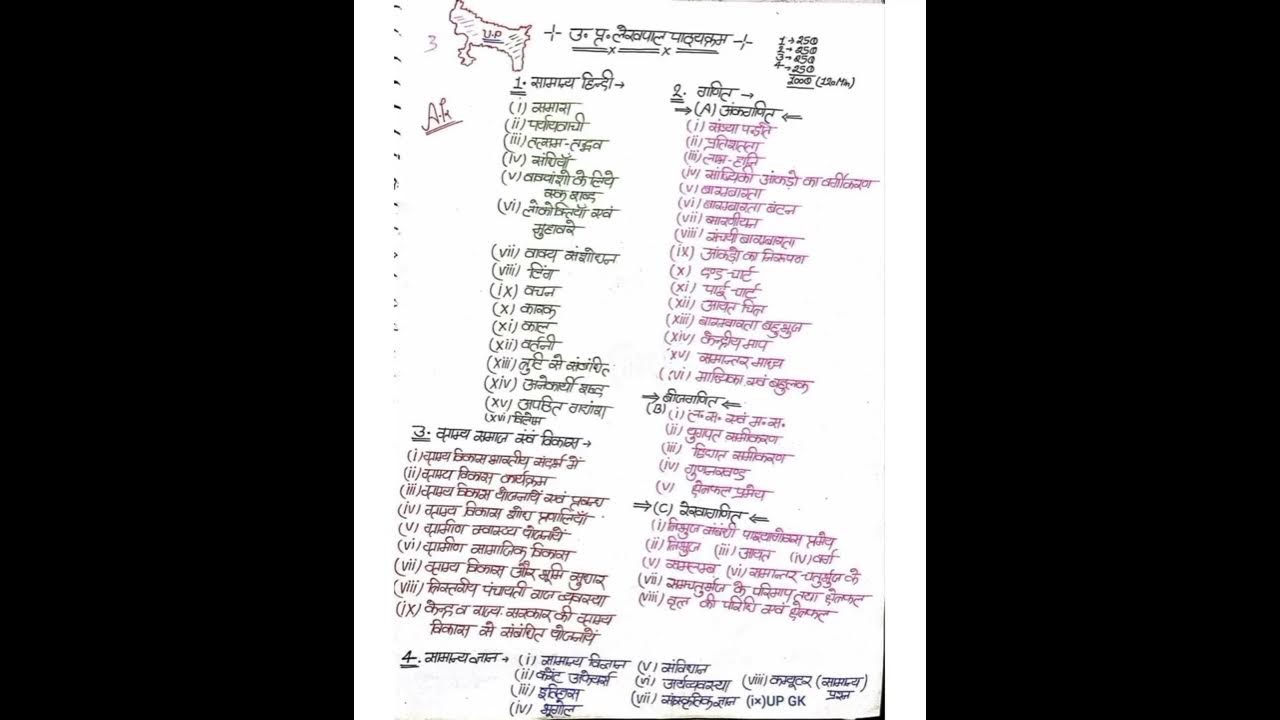 3
U.P
उ. प्र. लेखपाल पाठ्यक्रम
1 → 25Q
2 → 25Q
3 → 25Q
4 → 25Q
100Q (120 Min)
A.K
1. सामान्य हिन्दी →
(i) समास
(ii) पर्यायवाची
(iii) तत्सम-तद्भव
(iv) संधियाँ
(v) वाक्यांशो के लिये
एक शब्द
(vi) लोकोक्तियाँ एवं
मुहावरे
(vii) वाक्य संशोधन
(viii) लिंग
(ix) वचन
(x) कारक
(xi) काल
(xii) वर्तनी
(xiii) त्रुटि से संबंधित
(xiv) अनेकार्थी शब्द
(xv) अपठित गद्यांश
(xvi) विलोम
2. गणित →
⇒ (A) अंकगणित ⇐
(i) संख्या पद्धति
(ii) प्रतिशतता
(iii) लाभ-हानि
(iv) सांख्यिकी आंकड़ो का वर्गीकरण
(v) बारम्बारता
(vi) बारम्बारता बंटन
(vii) सारणीयन
(viii) संचयी बारम्बारता
(ix) आंकड़ो का निरूपण
(x) दण्ड-चार्ट
(xi) पाई-चार्ट
(xii) आयत चित्र
(xiii) बारम्बारता बहुभुज
(xiv) केन्द्रीय माप
(xv) समान्तर माध्य
(xvi) माध्यिका एवं बहुलक
⇒ बीजगणित ⇐
(B) (i) ल. स. एवं म. स.
(ii) युगपत समीकरण
(iii) द्विघात समीकरण
(iv) गुणनखण्ड
(v) क्षेत्रफल प्रमेय
⇒ (C) रेखागणित ⇐
(i) त्रिभुज संबंधी पाइथागोरस प्रमेय
(ii) त्रिभुज (iii) आयत (iv) वर्ग
(v) समलम्ब (vi) समान्तर-चतुर्भुज के
(vii) समचतुर्भुज के परिमाप तथा क्षेत्रफल
(viii) वृत्त की परिधि एवं क्षेत्रफल
3. ग्राम्य समाज एवं विकास →
(i) ग्राम्य विकास भारतीय संदर्भ में
(ii) ग्राम्य विकास कार्यक्रम
(iii) ग्राम्य विकास योजनायें एवं प्रबन्ध
(iv) ग्राम्य विकास शोध प्रणालियाँ
(v) ग्रामीण स्वास्थ्य योजनायें
(vi) ग्रामीण सामाजिक विकास
(vii) ग्राम्य विकास और भूमि सुधार
(viii) त्रिस्तरीय पंचायती राज व्यवस्था
(ix) केन्द्र व राज्य सरकार की ग्राम्य
विकास से संबंधित योजनायें
4. सामान्य ज्ञान → (i) सामान्य विज्ञान (v) संविधान
(ii) करेंट अफेयर्स (vi) अर्थव्यवस्था (viii) कम्प्यूटर (सामान्य)
प्रश्न
(iii) इतिहास (vii) संस्कृतिक ज्ञान (ix) UP GK
(iv) भूगोल